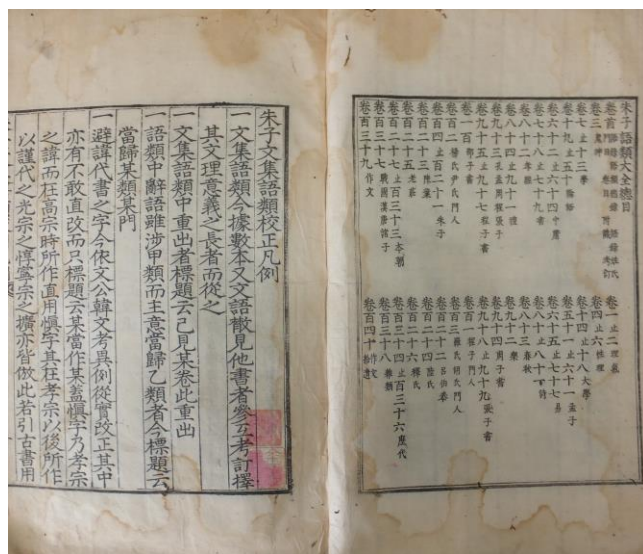 朱子語類大全總目
卷首
卷一止二理氣
卷三鬼神 卷四止六性理
卷七止十三學 卷十四止十八大學
卷十九止五十論語 卷五十一止六十一孟子
卷六十二止六十四中庸 卷六十五止七十七易
卷七十八止七十九書 卷八十止八十一詩
卷八十二孝經 卷八十三春秋
卷八十四止九十一禮 卷九十二樂
卷九十三孔孟周程張子 卷九十四周子書
卷九十五止九十七程子書 卷九十八止九十九張子書
卷一百邵子書 卷百一程子門人
卷百二楊氏尹氏門人 卷百三羅氏胡氏門人
卷百四止百二十一朱子 卷百二十二呂伯恭
卷百二十三陳葉 卷百二十四陸氏
卷百二十五老莊 卷百二十六釋氏
卷百二十七止百三十三本朝 卷百三十四止百三十六歷代
卷百三十七戰國漢唐諸子 卷百三十八雜類
卷百三十九作文 卷百四十作文
朱子文集語類校正凡例
一文集語類今據數本又文語散見他書者參互考訂擇
其文理意義之長者而從之
一文集語類中重出者標題云已見某卷此重出
一語類中辭語雖涉甲類而主意當歸乙類者今標題云
當歸某類某門
一避諱代書之字今依文公韓文考異例從實改正其中
亦有不敢直改而只標題云某當作某蓋愼字乃孝宗
之諱而在高宗時所作直用愼字其在孝宗以後所作
以謹代之光宗之惇寧宗之擴亦皆倣此若引古書用